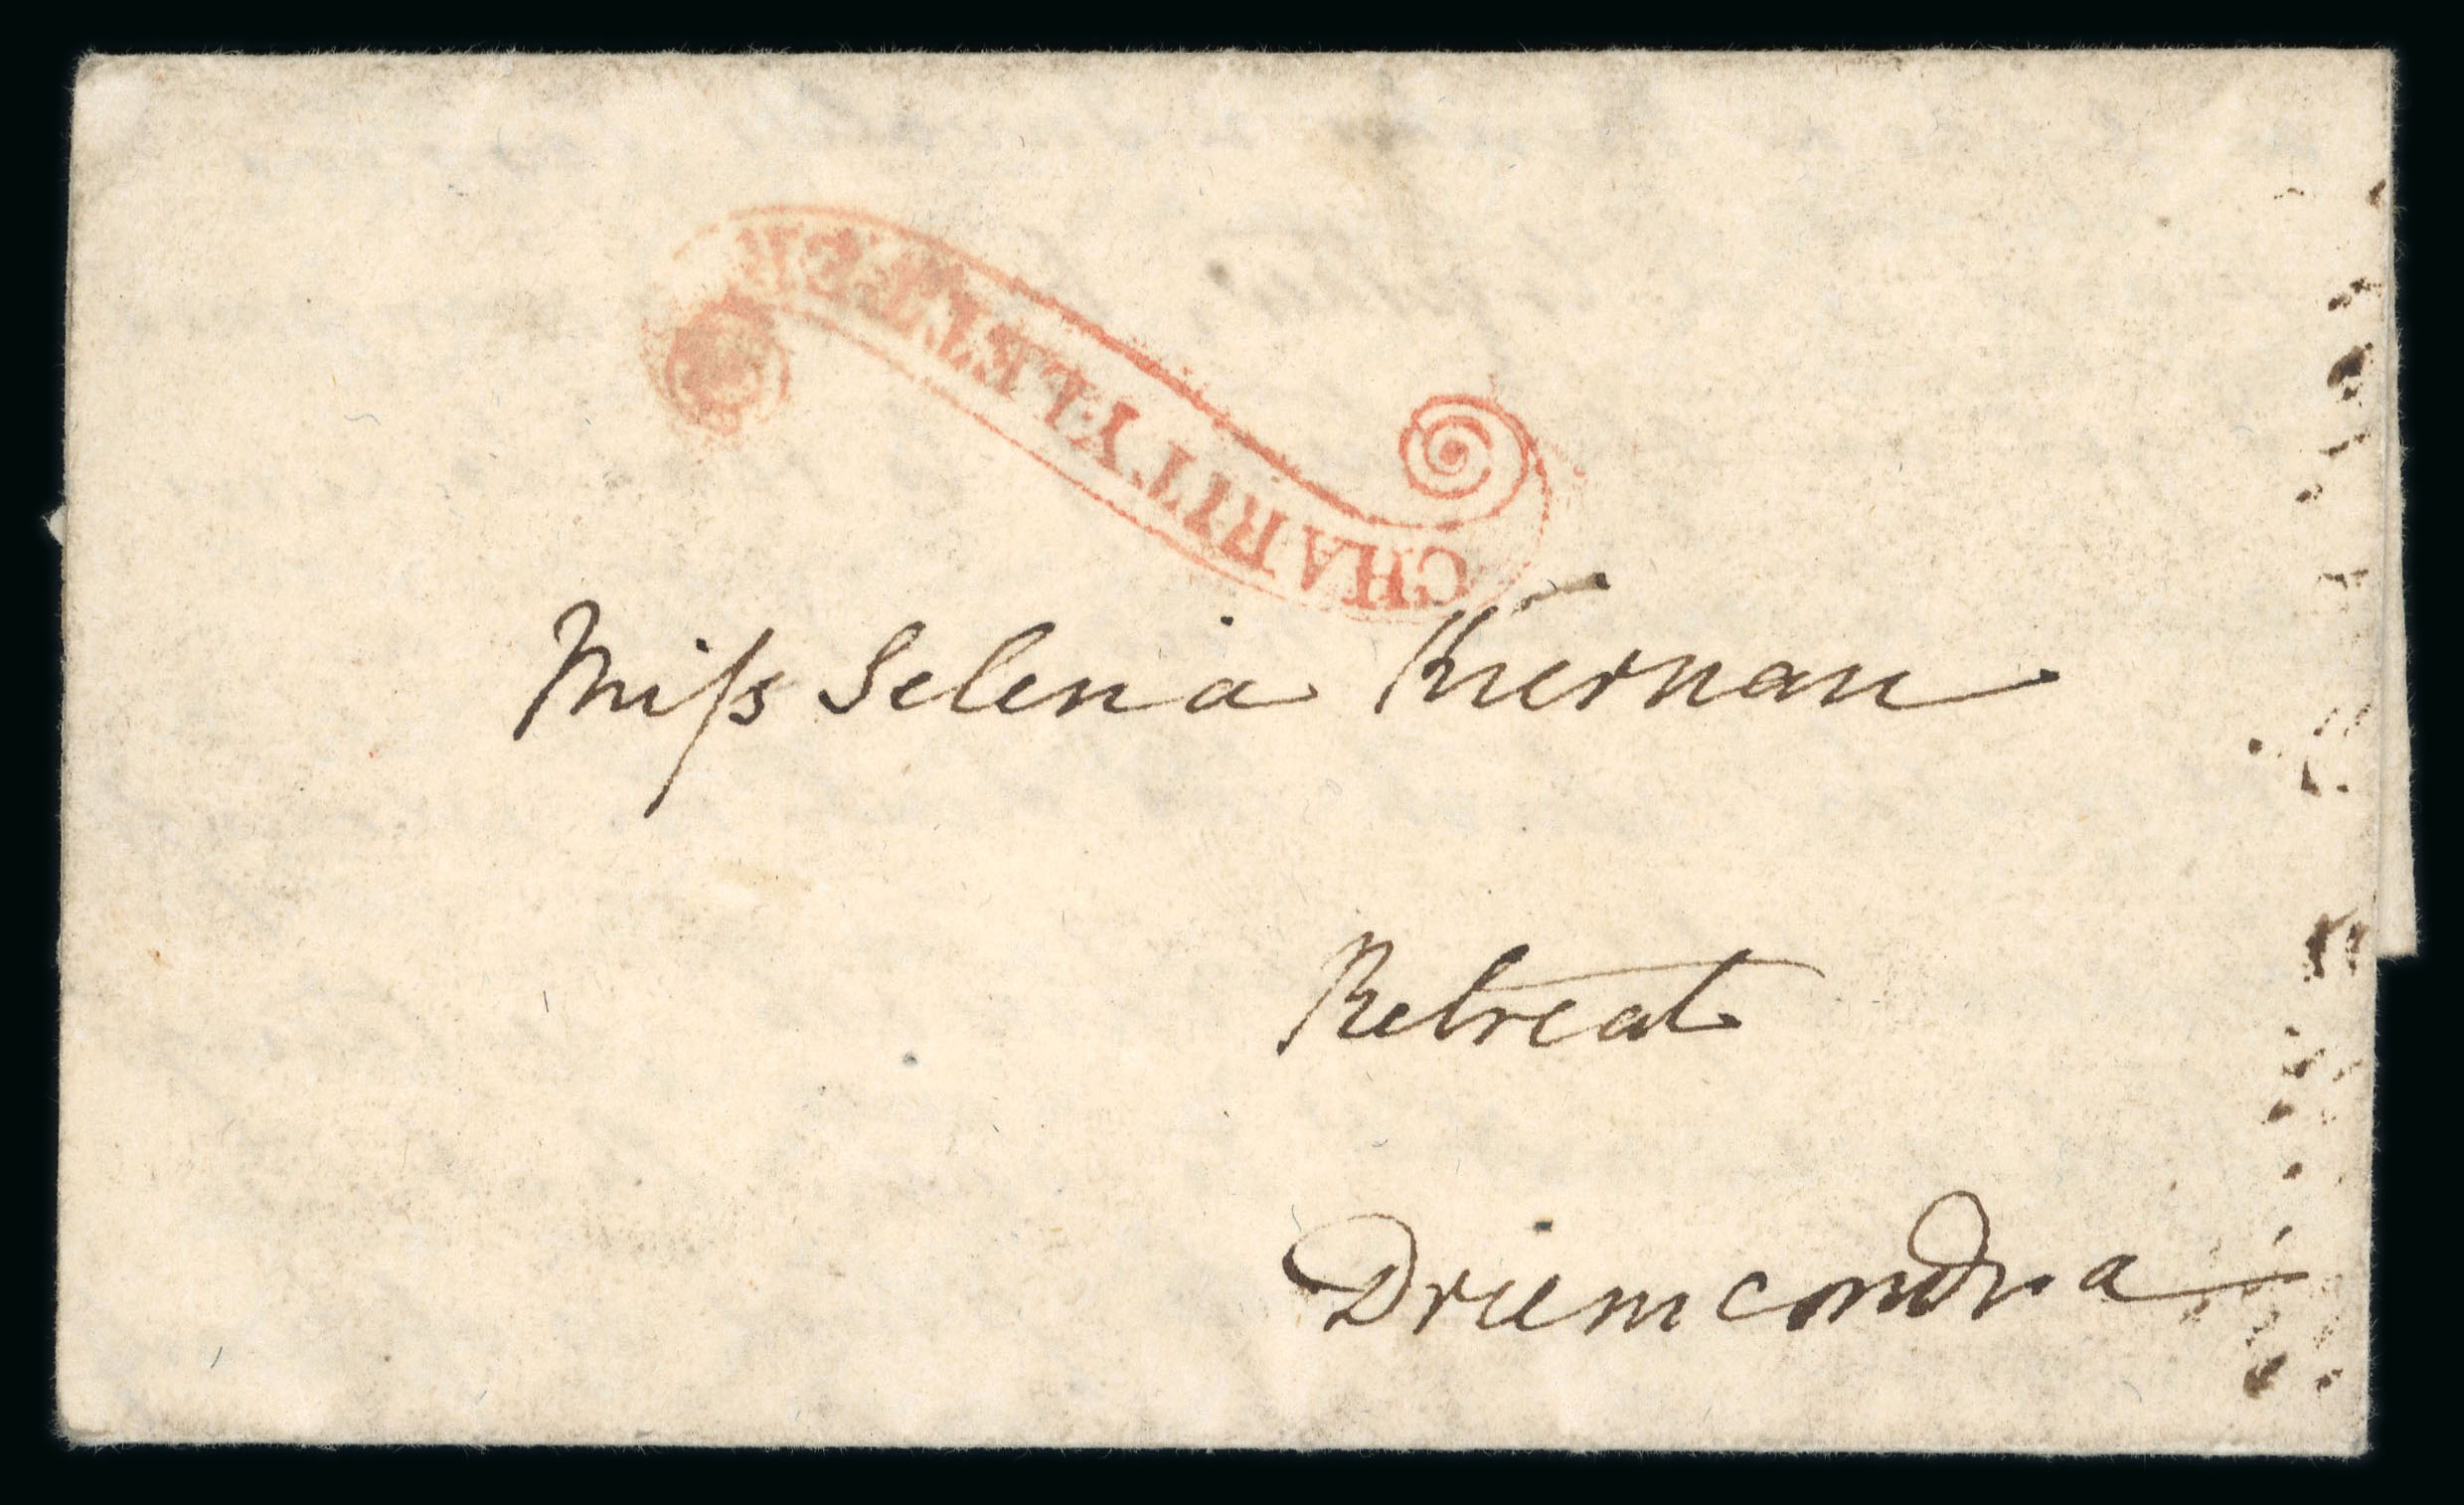 CHARITY LETTER
Miſs Selena Kiernan
Retreat
Drumcondra